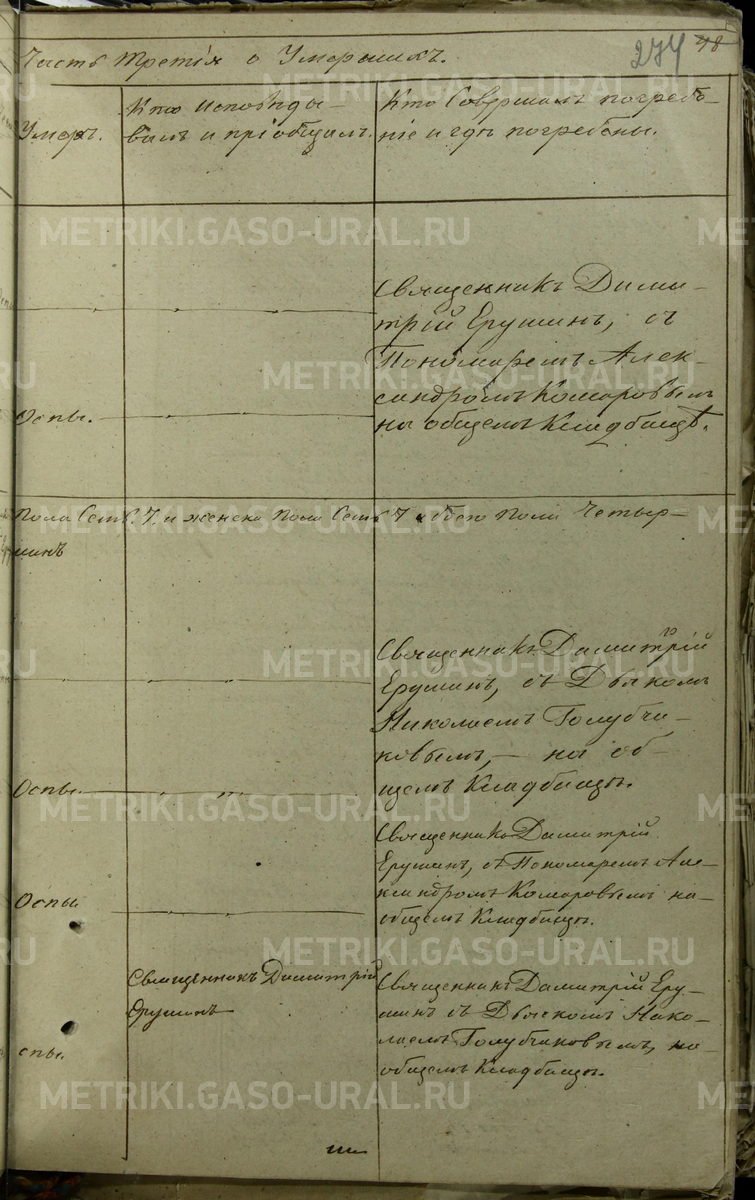 274 48
Часть третія о Умершихъ.
Умеръ.
Кто исповѣды-
валъ и пріобщалъ.
Кто Совершалъ погребѣ-
ніе и гдѣ погребены.
METRIKI.GASO-URAL.RU
Священникъ Дими-
трій Ерушинъ, съ
Пономаремъ Алек-
сандромъ Комаровымъ
на общемъ Кладбищѣ.
Оспы.
METRIKI.GASO-URAL.RU
пола Семь. 7. и женска пола Семь 7 обоего пола Четыр-
METRIKI.GASO-URAL.RU
Священникъ Димитрій
Ерушинъ, съ Дьякомъ
Николаемъ Голубчи-
ковымъ, — на об-
щемъ Кладбищѣ.
Оспы.
METRIKI.GASO-URAL.RU
Священникъ Димитрій
Ерушинъ, съ Пономаремъ Але-
ксандромъ Комаровымъ на
общемъ Кладбищѣ.
Оспы
METRIKI.GASO-URAL.RU
Священникъ Димитрій
Ерушинъ
Священникъ Димитрій Еру-
шинъ съ Дьякомъ Нико-
лаемъ Голубчиковымъ, на
общемъ Кладбищѣ.
спы.
METRIKI.GASO-URAL.RU